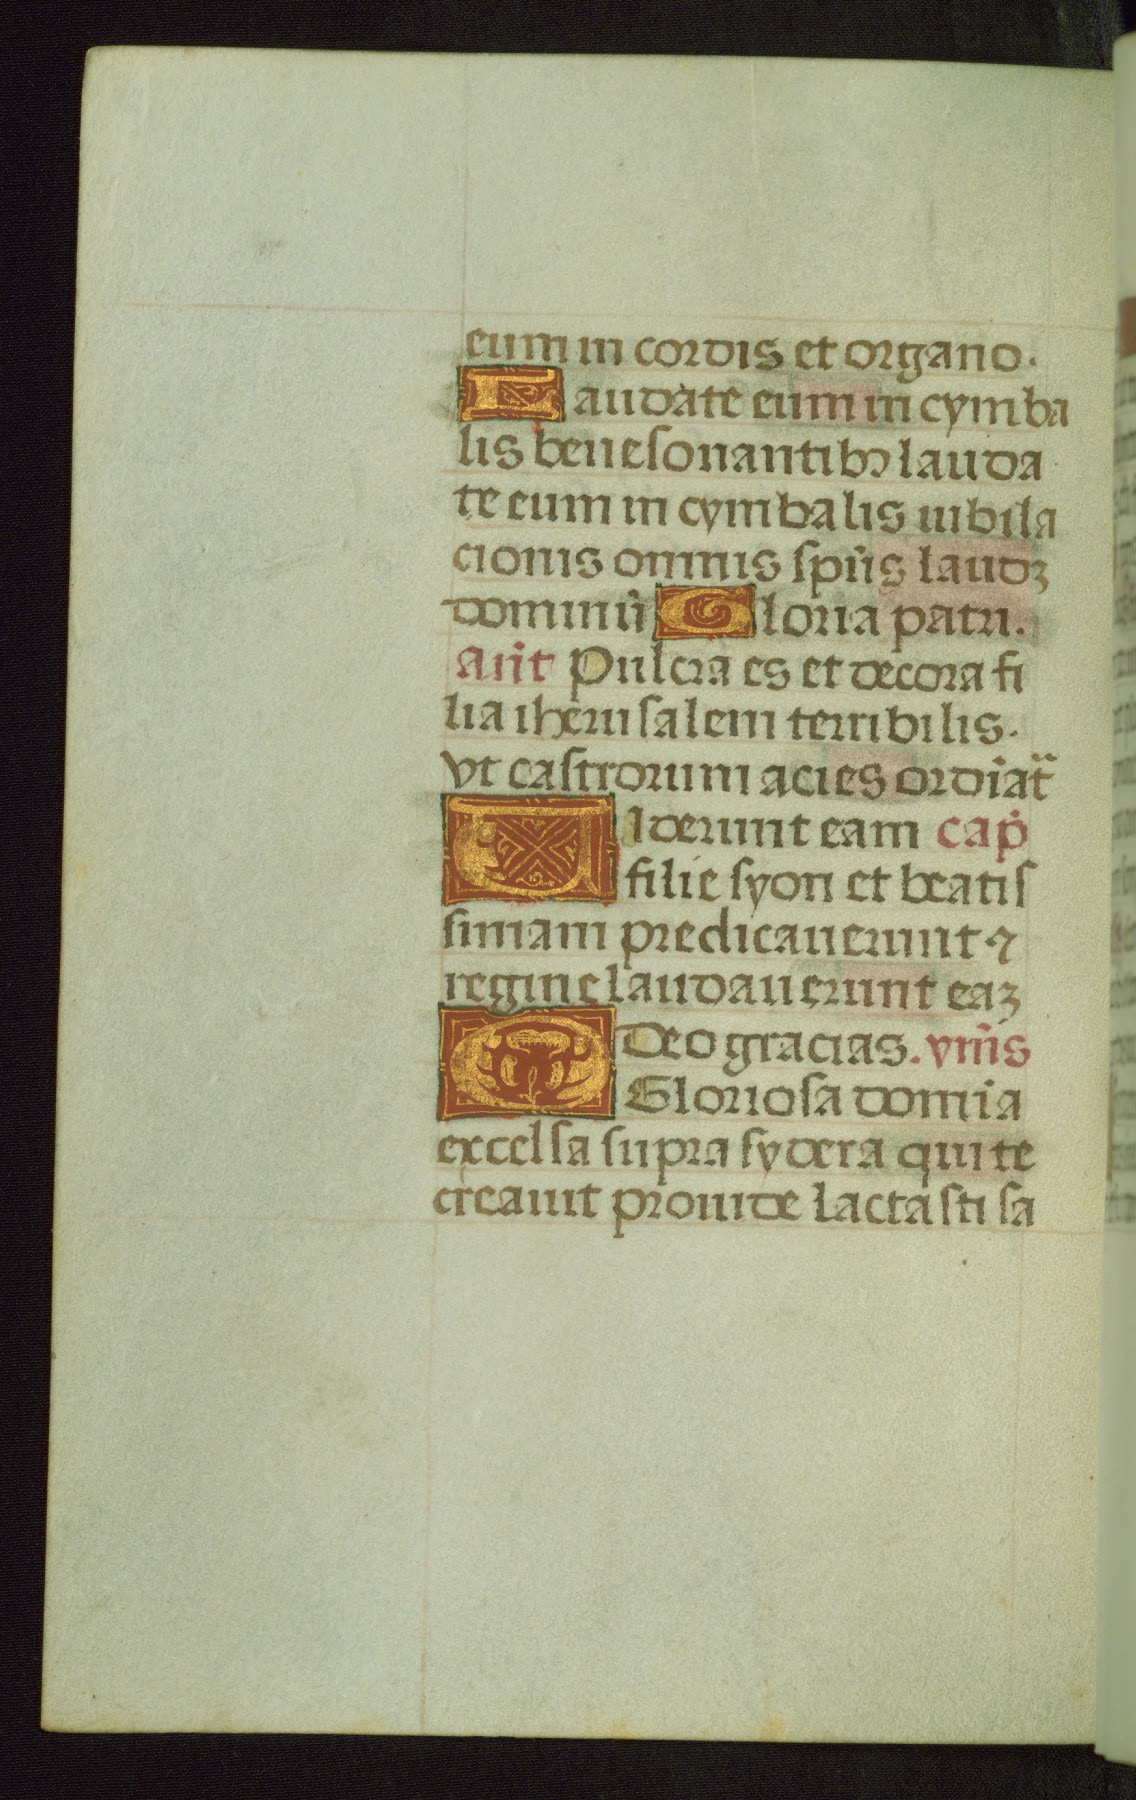 eum in cordis et organo.
Laudate eum in cymba
lis bene sonantibꝫ lauda
te eum in cymbalis iubila
cionis omnis sp̄us laudꝫ
dominū Gloria patri.
an̄t Pulcra es et decora fi
lia iherusalem terribilis.
vt castrorum acies ordiat̄
Viderunt eam cap̄
filie syon et beatis
simam predicauerunt ⁊
regine laudauerunt eaꝫ
Deo gracias. ym̄s
O Gloriosa domīa
excelsa supra sydera qui te
creauit prouide lactasti sa